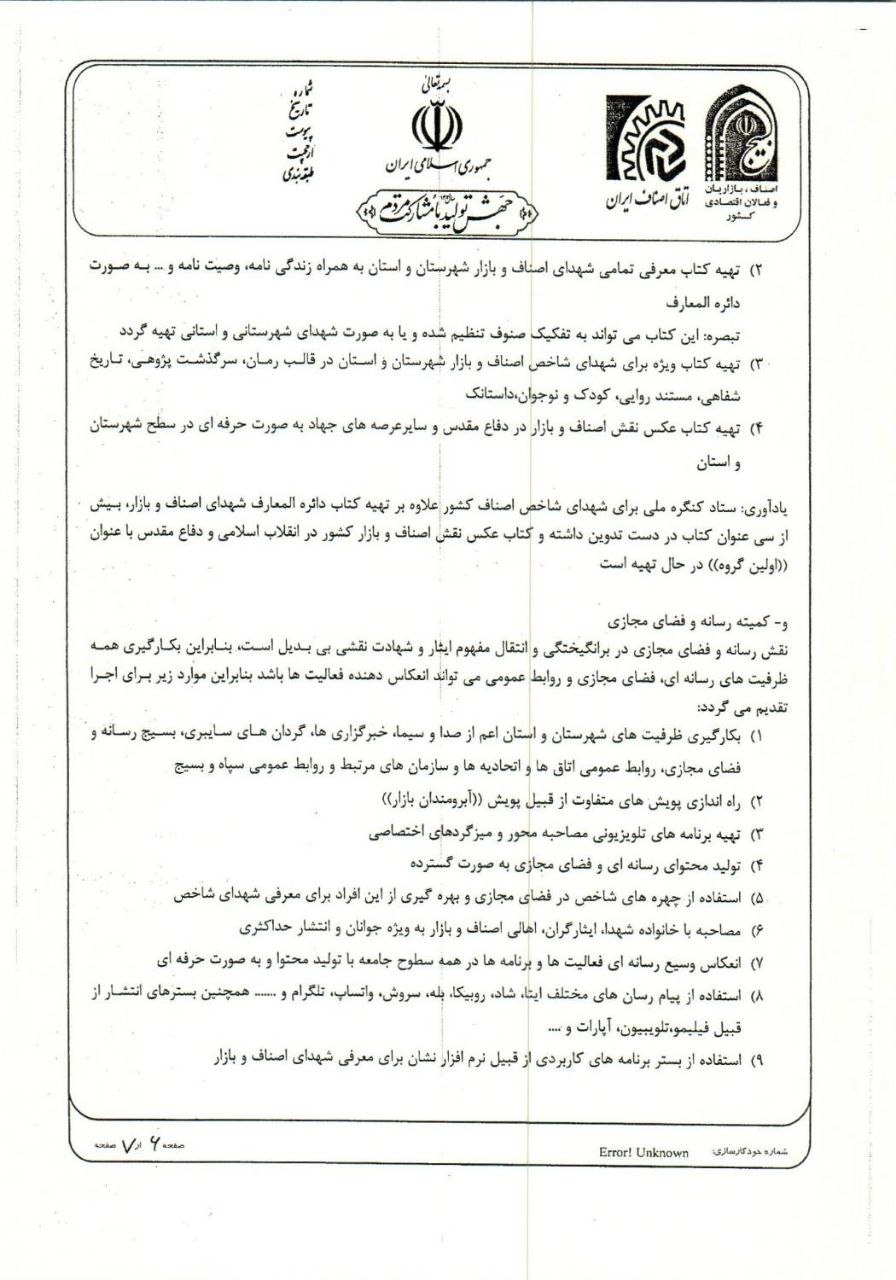 بسمه تعالی
جمهوری اسلامی ایران
جهش تولید با مشارکت مردم
شماره
تاریخ
پیوست
ارجحیت
طبقه بندی
اتاق اصناف ایران
بسیج
اصناف، بازاریان
و فعالان اقتصادی
کشور
۲) تهیه کتاب معرفی تمامی شهدای اصناف و بازار شهرستان و استان به همراه زندگی نامه، وصیت نامه و ... به صورت
دائره المعارف
تبصره: این کتاب می تواند به تفکیک صنوف تنظیم شده و یا به صورت شهدای شهرستانی و استانی تهیه گردد
۳) تهیه کتاب ویژه برای شهدای شاخص اصناف و بازار شهرستان و استان در قالب رمان، سرگذشت پژوهی، تاریخ
شفاهی، مستند روایی، کودک و نوجوان،داستانک
۴) تهیه کتاب عکس نقش اصناف و بازار در دفاع مقدس و سایرعرصه های جهاد به صورت حرفه ای در سطح شهرستان
و استان
یادآوری: ستاد کنگره ملی برای شهدای شاخص اصناف کشور علاوه بر تهیه کتاب دائره المعارف شهدای اصناف و بازار، بیش
از سی عنوان کتاب در دست تدوین داشته و کتاب عکس نقش اصناف و بازار کشور در انقلاب اسلامی و دفاع مقدس با عنوان
((اولین گروه)) در حال تهیه است
و- کمیته رسانه و فضای مجازی
نقش رسانه و فضای مجازی در برانگیختگی و انتقال مفهوم ایثار و شهادت نقشی بی بدیل است، بنابراین بکارگیری همه
ظرفیت های رسانه ای، فضای مجازی و روابط عمومی می تواند انعکاس دهنده فعالیت ها باشد بنابراین موارد زیر برای اجرا
تقدیم می گردد:
۱) بکارگیری ظرفیت های شهرستان و استان اعم از صدا و سیما، خبرگزاری ها، گردان های سایبری، بسیج رسانه و
فضای مجازی، روابط عمومی اتاق ها و اتحادیه ها و سازمان های مرتبط و روابط عمومی سپاه و بسیج
۲) راه اندازی پویش های متفاوت از قبیل پویش ((آبرومندان بازار))
۳) تهیه برنامه های تلویزیونی مصاحبه محور و میزگردهای اختصاصی
۴) تولید محتوای رسانه ای و فضای مجازی به صورت گسترده
۵) استفاده از چهره های شاخص در فضای مجازی و بهره گیری از این افراد برای معرفی شهدای شاخص
۶) مصاحبه با خانواده شهدا، ایثارگران، اهالی اصناف و بازار به ویژه جوانان و انتشار حداکثری
۷) انعکاس وسیع رسانه ای فعالیت ها و برنامه ها در همه سطوح جامعه با تولید محتوا و به صورت حرفه ای
۸) استفاده از پیام رسان های مختلف ایتا، شاد، روبیکا، بله، سروش، واتساپ، تلگرام و ....... همچنین بسترهای انتشار از
قبیل فیلیمو،تلوبیون، آپارات و ....
۹) استفاده از بستر برنامه های کاربردی از قبیل نرم افزار نشان برای معرفی شهدای اصناف و بازار
شماره خودکارسازی: Error! Unknown
صفحه ۶ از ۷ صفحه